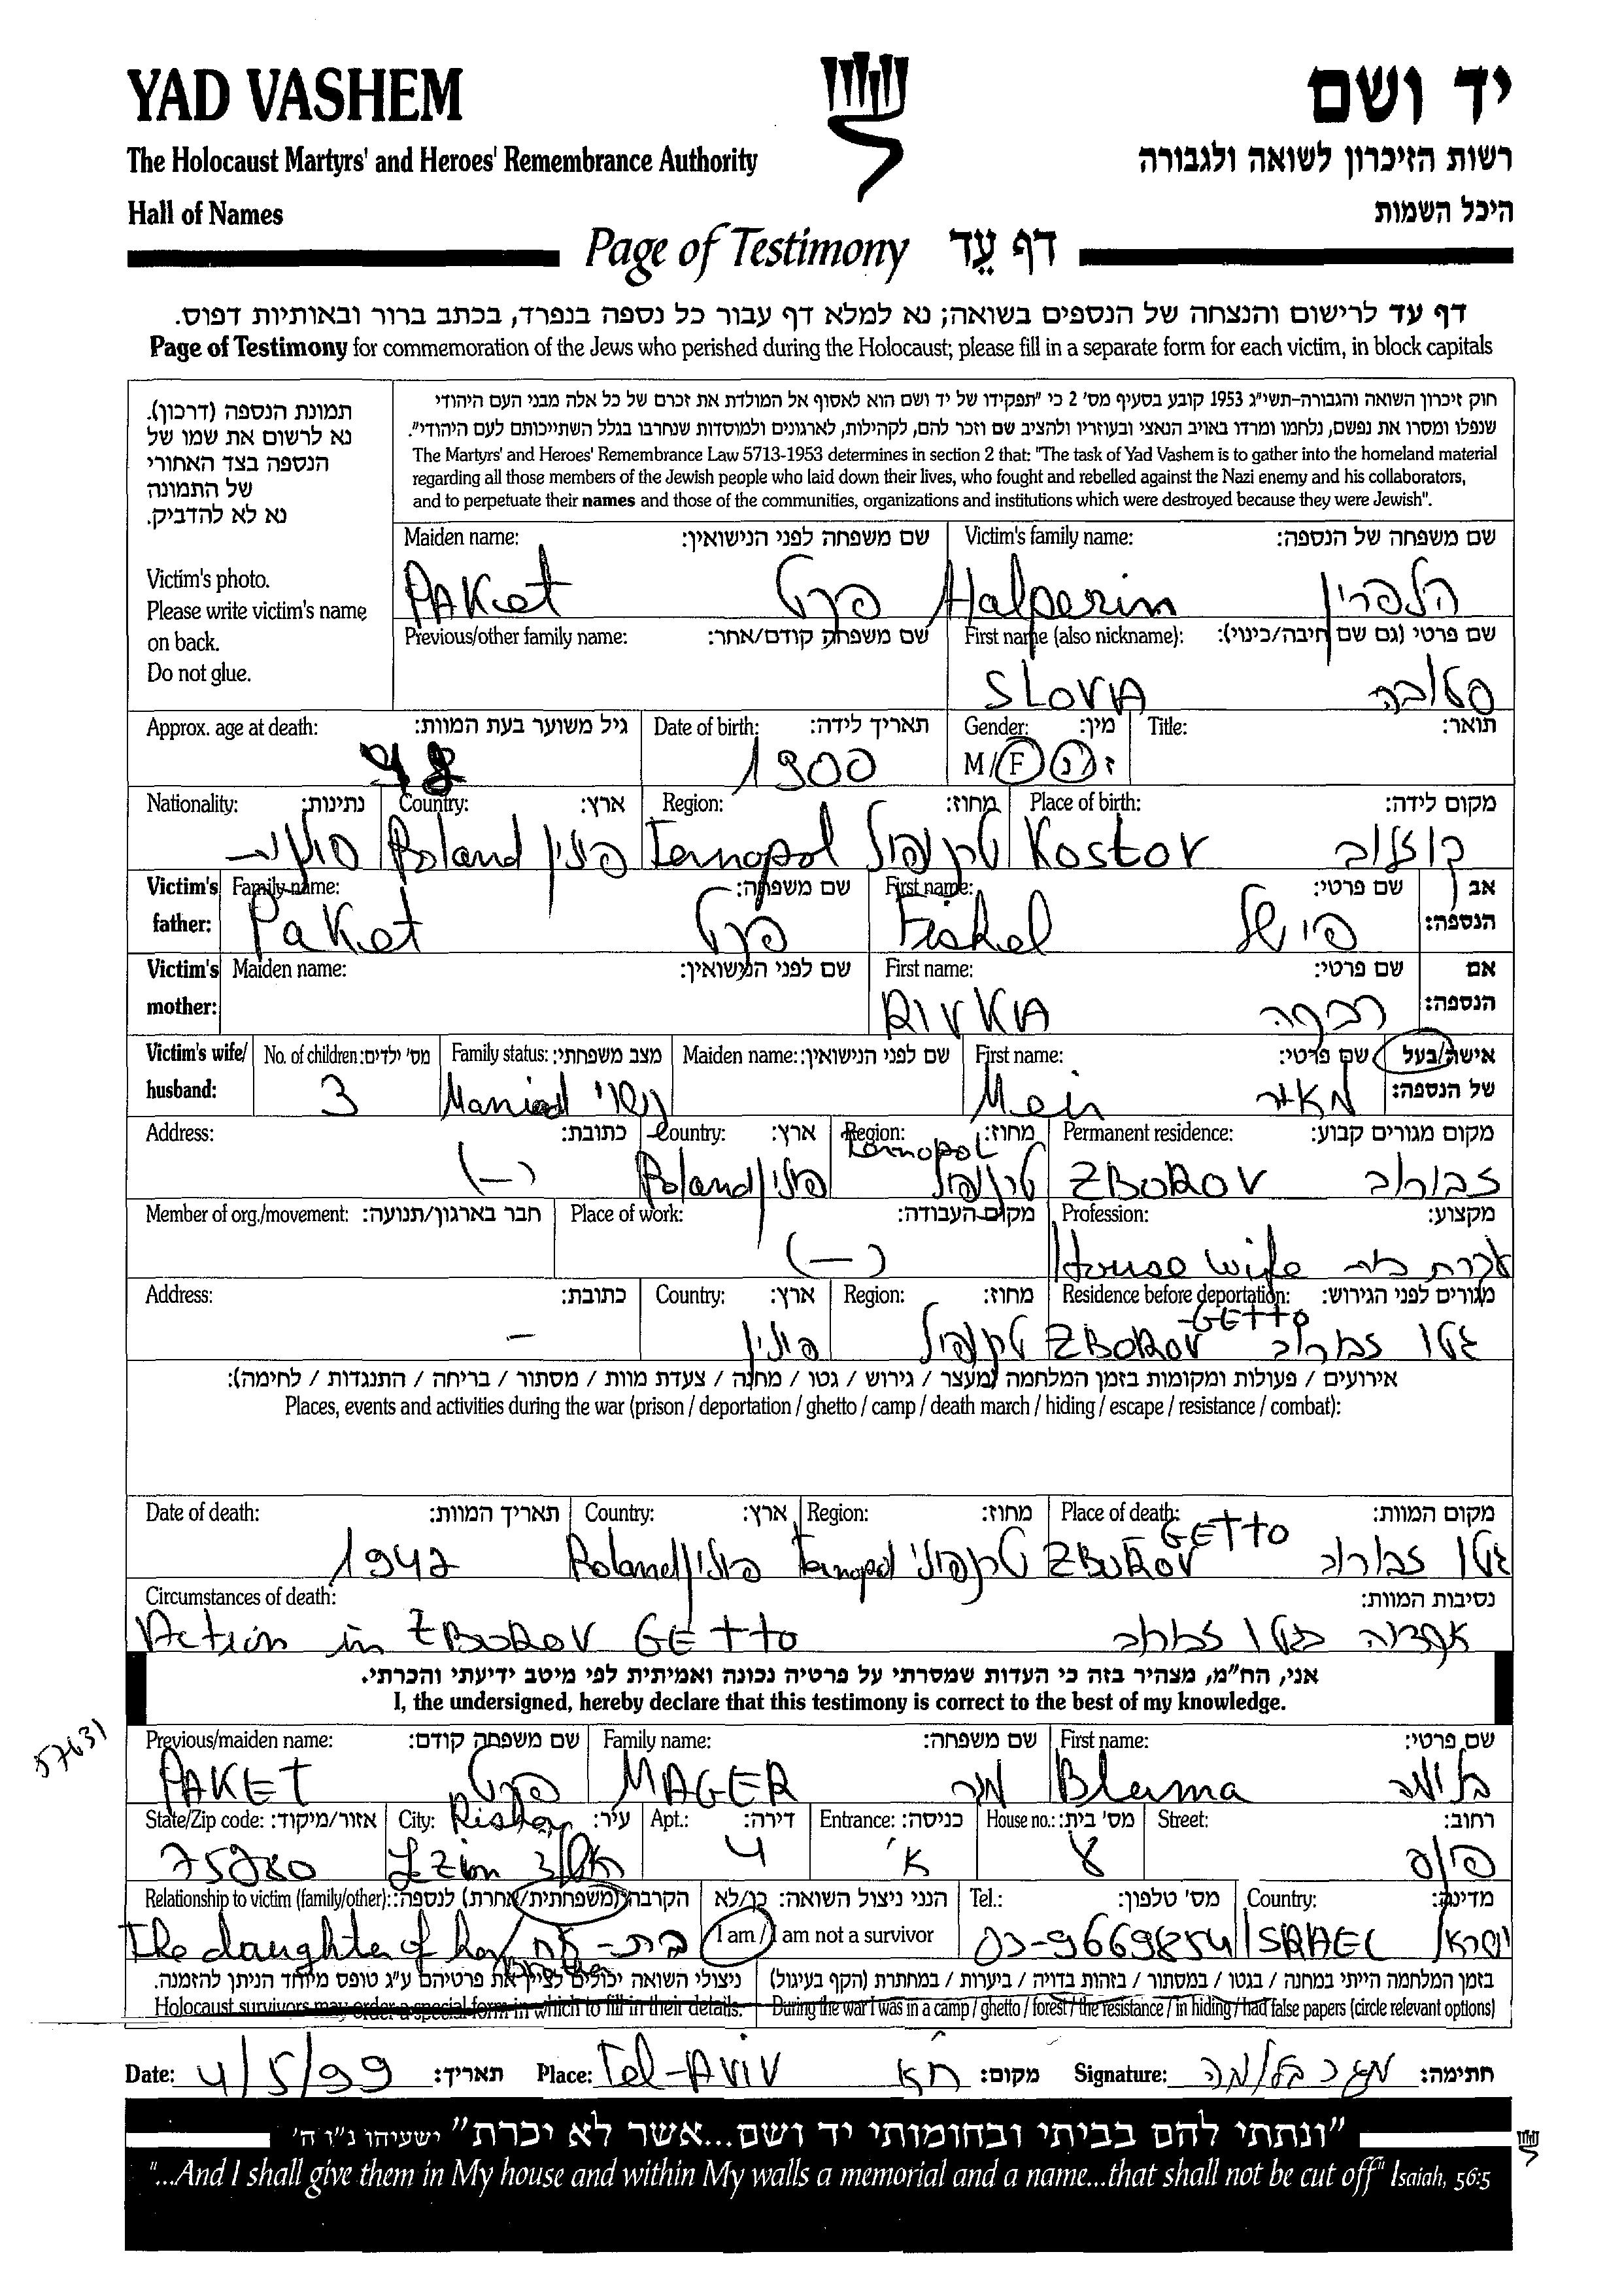 YAD VASHEM
יד ושם
The Holocaust Martyrs' and Heroes' Remembrance Authority
רשות הזיכרון לשואה ולגבורה
Hall of Names
היכל השמות
Page of Testimony דף עֵד
דף עד לרישום והנצחה של הנספים בשואה; נא למלא דף עבור כל נספה בנפרד, בכתב ברור ובאותיות דפוס.
Page of Testimony for commemoration of the Jews who perished during the Holocaust; please fill in a separate form for each victim, in block capitals
תמונת הנספה (דרכון).
נא לרשום את שמו של
הנספה בצד האחורי
של התמונה
נא לא להדביק.
Victim's photo.
Please write victim's name
on back.
Do not glue.
חוק זיכרון השואה והגבורה-תשי״ג 1953 קובע בסעיף מס׳ 2 כי "תפקידו של יד ושם הוא לאסוף אל המולדת את זכרם של כל אלה מבני העם היהודי
שנפלו ומסרו את נפשם, נלחמו ומרדו באויב הנאצי ובעוזריו ולהציב שם וזכר להם, לקהילות, לארגונים ולמוסדות שנחרבו בגלל השתייכותם לעם היהודי".
The Martyrs' and Heroes' Remembrance Law 5713-1953 determines in section 2 that: "The task of Yad Vashem is to gather into the homeland material
regarding all those members of the Jewish people who laid down their lives, who fought and rebelled against the Nazi enemy and his collaborators,
and to perpetuate their names and those of the communities, organizations and institutions which were destroyed because they were Jewish".
Maiden name: שם משפחה לפני הנישואין: Victim's family name: שם משפחה של הנספה:
PAKet פקט Halperin הלפרין
Previous/other family name: שם משפחה קודם/אחר: First name (also nickname): שם פרטי (גם שם חיבה/כינוי):
SLOVA סלובה
Approx. age at death: גיל משוער בעת המוות: Date of birth: תאריך לידה: Gender: מין: Title: תואר:
1900 M/F ז/נ
Nationality: נתינות: Country: ארץ: Region: מחוז: Place of birth: מקום לידה:
פולנית Poland פולין Ternopol טרנופול Kostov קוזלוב
Victim's father: Family name: שם משפחה: First name: שם פרטי: אב הנספה:
Paket פקט Fishel פישל
Victim's mother: Maiden name: שם לפני הנישואין: First name: שם פרטי: אם הנספה:
RIVKA רבקה
Victim's wife/ husband: No. of children: מס׳ ילדים: Family status: מצב משפחתי: Maiden name: שם לפני הנישואין: First name: שם פרטי: אישה/בעל של הנספה:
3 Maried נשוי Meir מאיר
Address: כתובת: Country: ארץ: Region: מחוז: Permanent residence: מקום מגורים קבוע:
(-) Poland פולין Ternopol טרנופול ZBOROV זבורוב
Member of org./movement: חבר בארגון/תנועה: Place of work: מקום העבודה: Profession: מקצוע:
(-) House wife עקרת בית
Address: כתובת: Country: ארץ: Region: מחוז: Residence before deportation: מגורים לפני הגירוש:
- פולין טרנופול ZBOROV GETTO גטו זבורוב
אירועים / פעולות ומקומות בזמן המלחמה (מעצר / גירוש / גטו / מחנה / צעדת מוות / מסתור / בריחה / התנגדות / לחימה):
Places, events and activities during the war (prison / deportation / ghetto / camp / death march / hiding / escape / resistance / combat):
Date of death: תאריך המוות: Country: ארץ: Region: מחוז: Place of death: מקום המוות:
1942 Poland פולין Ternopol טרנופול ZBOROV GETTO גטו זבורוב
Circumstances of death: נסיבות המוות:
Action in ZBOROV GETTO אקציה בגטו זבורוב
אני, הח״מ, מצהיר בזה כי העדות שמסרתי על פרטיה נכונה ואמיתית לפי מיטב ידיעתי והכרתי.
I, the undersigned, hereby declare that this testimony is correct to the best of my knowledge.
57631
Previous/maiden name: שם משפחה קודם: Family name: שם משפחה: First name: שם פרטי:
PAKET פקט MAGER מגר Bluma בלומה
State/Zip code: אזור/מיקוד: City: עיר: Apt.: דירה: Entrance: כניסה: House no.: מס׳ בית: Street: רחוב:
75280 Rishon Lezion ראשל"צ 4 א' 8
Relationship to victim (family/other): הקרבה (משפחתית/אחרת) לנספה: הנני ניצול השואה: כן/לא Tel.: מס׳ טלפון: Country: מדינה:
The daughter of her brother בת-אח I am / I am not a survivor 03-9669854 ISRAEL ישראל
ניצולי השואה יכולים לציין את פרטיהם ע״ג טופס מיוחד הניתן להזמנה. בזמן המלחמה הייתי במחנה / בגטו / במסתור / בזהות בדויה / ביערות / במחתרת (הקף בעיגול)
Holocaust survivors may order a special form in which to fill in their details. During the war I was in a camp / ghetto / forest / the resistance / in hiding / had false papers (circle relevant options)
Date: 4/5/99 תאריך: Place: Tel-Aviv ת"א מקום: Signature: מגר בלומה חתימה:
"ונתתי להם בביתי ובחומותי יד ושם...אשר לא יכרת" ישעיהו נ״ו ה׳
"...And I shall give them in My house and within My walls a memorial and a name...that shall not be cut off" Isaiah, 56:5